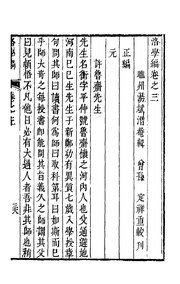 洛學編卷之三
睢州湯斌潛菴輯 曾孫 定祥重較刊
正編
元
許魯齋先生
先生名衡字平仲號魯齋懷之河內人也父通避地
河南以己巳生先生於新鄭幼有異質七歲入學授章
句問其師曰讀書何為師曰取科第耳曰如斯而已
乎師大奇之每授書卽能問其旨義久之師謂其父
母曰兒穎悟不凡他日必有大過人者吾非其師也
洛學編
卷之三